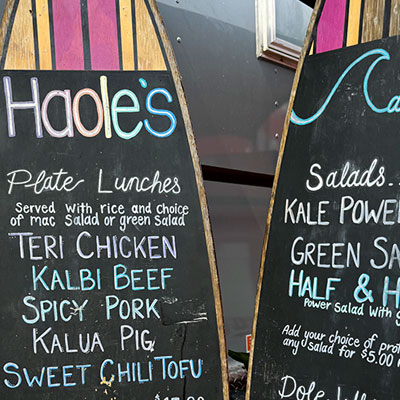 Haole's
Plate Lunches
Served with rice and choice
of mac Salad or green Salad
TERI CHICKEN
KALBI BEEF
SPICY PORK
KALUA PIG
SWEET CHILI TOFU
Salads...
KALE POWER
GREEN SA
HALF & H
Power Salad with g
Add your choice of pro
any salad for $5.00
Dole